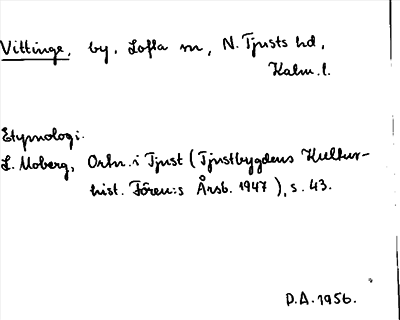 Vittinge, by, Lofta sn, N. Tjusts hd,
Kalm. l.
Etymologi.
L. Moberg, Ortn. i Tjust (Tjustbygdens Kultur-
hist. Fören:s Årsb. 1947), s. 43.
D.A. 1956.